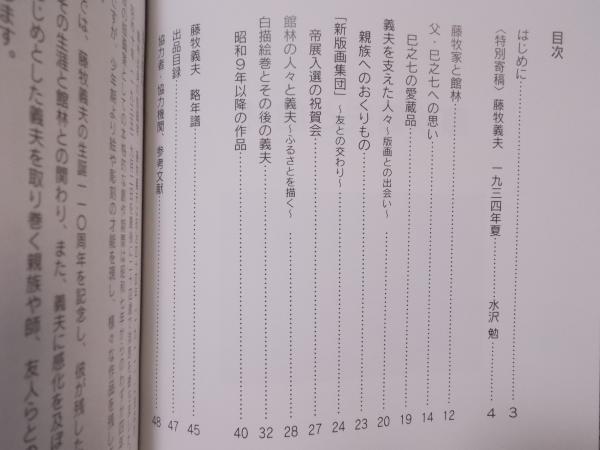 目次
はじめに 3
〈特別寄稿〉藤牧義夫 一九三四年夏 水沢 勉 4
藤牧家と館林 12
父・巳之七への思い 14
巳之七の愛蔵品 19
義夫を支えた人々~版画との出会い~ 20
親族へのおくりもの 23
「新版画集団」~友との交わり~ 24
帝展入選の祝賀会 27
館林の人々と義夫~ふるさとを描く~ 28
白描絵巻とその後の義夫 32
昭和9年以降の作品 40
藤牧義夫 略年譜 45
出品目録 47
協力者・協力機関、参考文献 48
では、藤牧義夫の生誕一一〇周年を記念し、彼が残した
その生涯と館林との関わり、また、義夫に感化を及ぼ
じめとした義夫を取り巻く親族や師、友人らとの
ます。